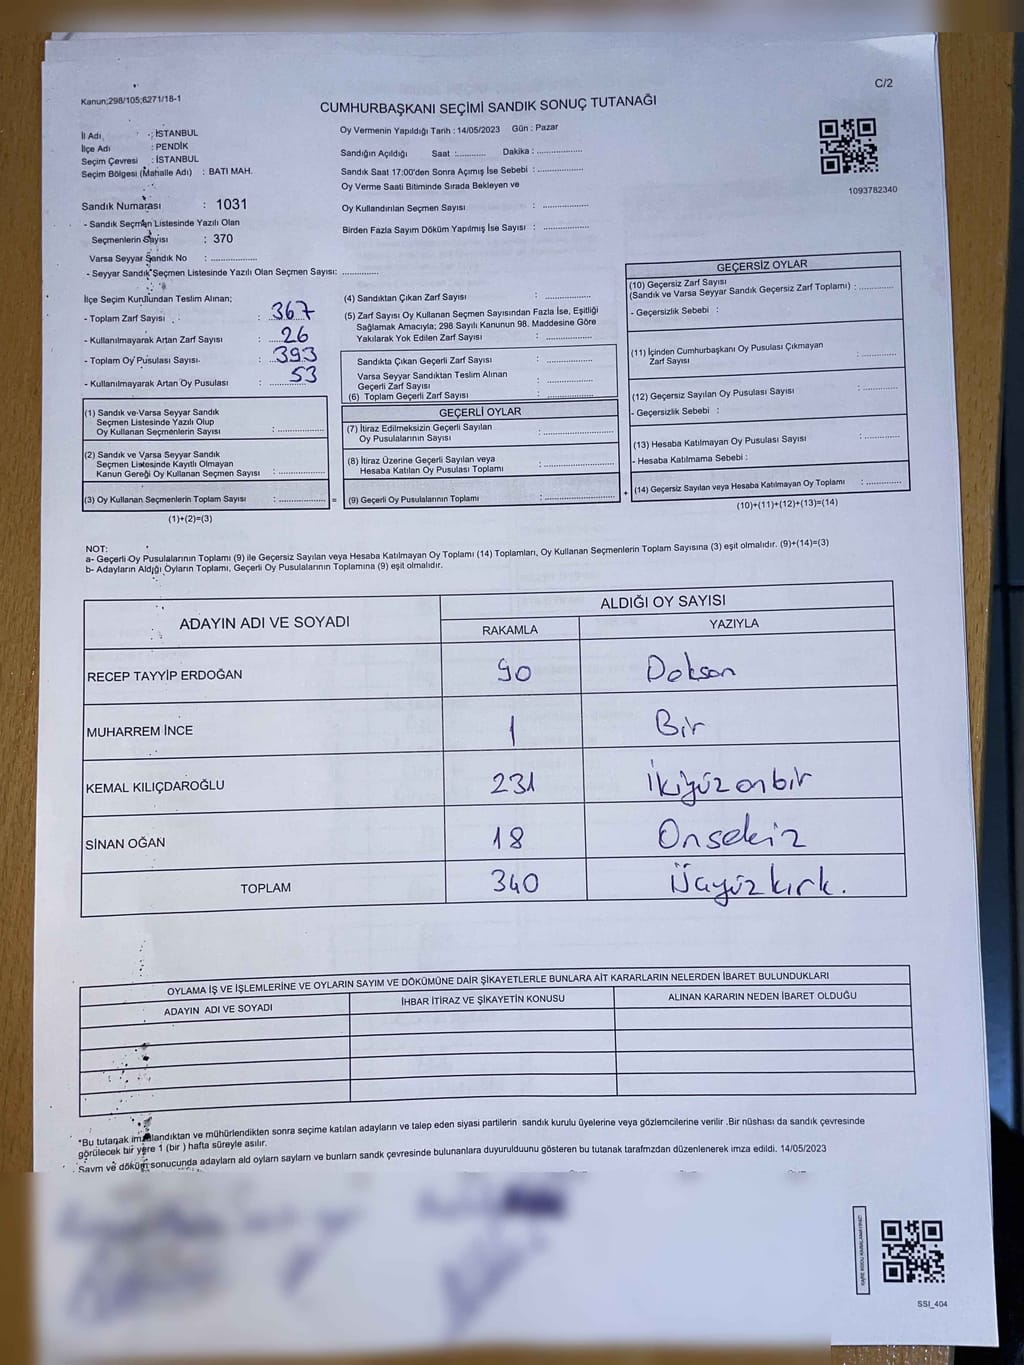 C/2
Kanun;298/105;6271/18-1
CUMHURBAŞKANI SEÇİMİ SANDIK SONUÇ TUTANAĞI
İl Adı : İSTANBUL
İlçe Adı : PENDİK
Seçim Çevresi : İSTANBUL
Seçim Bölgesi (Mahalle Adı) : BATI MAH.
Sandık Numarası : 1031
- Sandık Seçmen Listesinde Yazılı Olan
Seçmenlerin Sayısı : 370
Varsa Seyyar Sandık No : ..................
- Seyyar Sandık Seçmen Listesinde Yazılı Olan Seçmen Sayısı: ..............
Oy Vermenin Yapıldığı Tarih : 14/05/2023 Gün : Pazar
Sandığın Açıldığı Saat :........... Dakika : .................
Sandık Saat 17:00'den Sonra Açımış İse Sebebi : .................
Oy Verme Saati Bitiminde Sırada Bekleyen ve
Oy Kullandırılan Seçmen Sayısı : .................
Birden Fazla Sayım Döküm Yapılmış İse Sayısı : .................
1093782340
İlçe Seçim Kurulundan Teslim Alınan;
- Toplam Zarf Sayısı : 367
- Kullanılmayarak Artan Zarf Sayısı : 26
- Toplam Oy Pusulası Sayısı : 393
- Kullanılmayarak Artan Oy Pusulası : 53
(1) Sandık ve Varsa Seyyar Sandık
Seçmen Listesinde Yazılı Olup
Oy Kullanan Seçmenlerin Sayısı : .................
(2) Sandık ve Varsa Seyyar Sandık
Seçmen Listesinde Kayıtlı Olmayan
Kanun Gereği Oy Kullanan Seçmen Sayısı : .................
(3) Oy Kullanan Seçmenlerin Toplam Sayısı : ................. =
(1)+(2)=(3)
(4) Sandıktan Çıkan Zarf Sayısı : .................
(5) Zarf Sayısı Oy Kullanan Seçmen Sayısından Fazla İse, Eşitliği
Sağlamak Amacıyla; 298 Sayılı Kanunun 98. Maddesine Göre
Yakılarak Yok Edilen Zarf Sayısı : .................
Sandıkta Çıkan Geçerli Zarf Sayısı : .................
Varsa Seyyar Sandıktan Teslim Alınan
Geçerli Zarf Sayısı : .................
(6) Toplam Geçerli Zarf Sayısı : .................
GEÇERLİ OYLAR
(7) İtiraz Edilmeksizin Geçerli Sayılan
Oy Pusulalarının Sayısı : .................
(8) İtiraz Üzerine Geçerli Sayılan veya
Hesaba Katılan Oy Pusulası Toplamı : .................
(9) Geçerli Oy Pusulalarının Toplamı : ................. +
GEÇERSİZ OYLAR
(10) Geçersiz Zarf Sayısı
(Sandık ve Varsa Seyyar Sandık Geçersiz Zarf Toplamı) : .............
- Geçersizlik Sebebi :
(11) İçinden Cumhurbaşkanı Oy Pusulası Çıkmayan
Zarf Sayısı : .............
(12) Geçersiz Sayılan Oy Pusulası Sayısı : .............
- Geçersizlik Sebebi :
(13) Hesaba Katılmayan Oy Pusulası Sayısı : .............
- Hesaba Katılmama Sebebi :
(14) Geçersiz Sayılan veya Hesaba Katılmayan Oy Toplamı : .............
(10)+(11)+(12)+(13)=(14)
NOT:
a- Geçerli Oy Pusulalarının Toplamı (9) ile Geçersiz Sayılan veya Hesaba Katılmayan Oy Toplamı (14) Toplamları, Oy Kullanan Seçmenlerin Toplam Sayısına (3) eşit olmalıdır. (9)+(14)=(3)
b- Adayların Aldığı Oyların Toplamı, Geçerli Oy Pusulalarının Toplamına (9) eşit olmalıdır.
ADAYIN ADI VE SOYADI ALDIĞI OY SAYISI
RAKAMLA YAZIYLA
RECEP TAYYİP ERDOĞAN 90 Doksan
MUHARREM İNCE 1 Bir
KEMAL KILIÇDAROĞLU 231 İkiyüz onbir
SİNAN OĞAN 18 Onsekiz
TOPLAM 340 Üçyüz kırk.
OYLAMA İŞ VE İŞLEMLERİNE VE OYLARIN SAYIM VE DÖKÜMÜNE DAİR ŞİKAYETLERLE BUNLARA AİT KARARLARIN NELERDEN İBARET BULUNDUKLARI
ADAYIN ADI VE SOYADI İHBAR İTİRAZ VE ŞİKAYETİN KONUSU ALINAN KARARIN NEDEN İBARET OLDUĞU
*Bu tutanak imzalandıktan ve mühürlendikten sonra seçime katılan adayların ve talep eden siyasi partilerin sandık kurulu üyelerine veya gözlemcilerine verilir .Bir nüshası da sandık çevresinde
görülecek bir yere 1 (bir ) hafta süreyle asılır.
Sayım ve döküm sonucunda adayların ald oyların sayların ve bunların sandk çevresinde bulunanlara duyurulduunu gösteren bu tutanak tarafmzdan düzenlenerek imza edildi. 14/05/2023
SSI_404